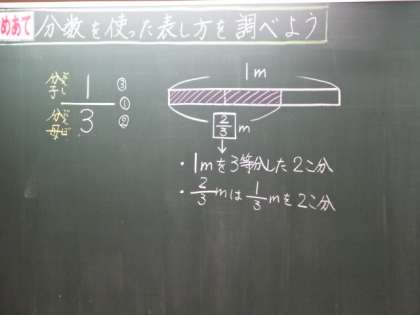 めあて 分数を使った表し方を調べよう
1m
分子 ぶんし 1 ③
①
分母 ぶんぼ 3 ②
2/3 m
・1mを3等分した2こ分
・2/3mは1/3mを2こ分